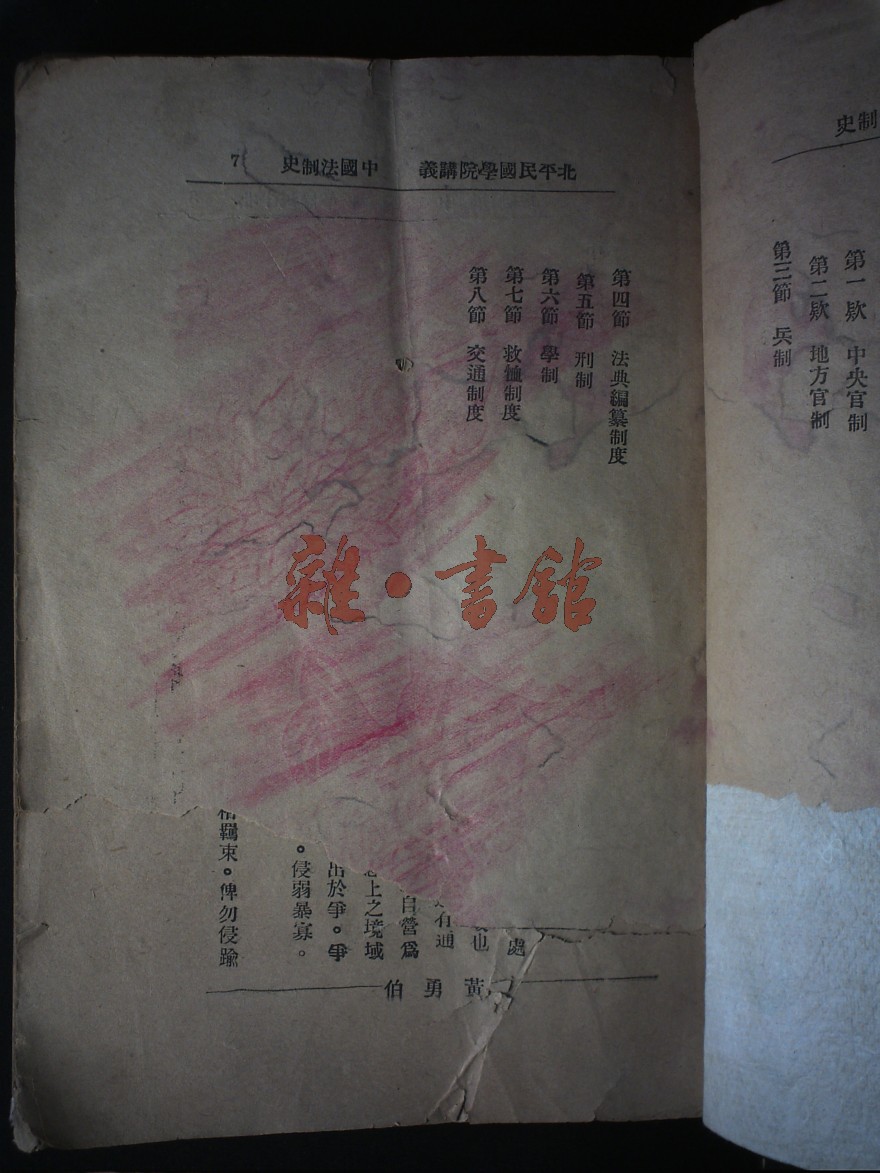 制史
第一欵 中央官制
第二欵 地方官制
第三節 兵制
北平民國學院講義 中國法制史 7
第四節 法典編纂制度
第五節 刑制
第六節 學制
第七節 救恤制度
第八節 交通制度
雜·書館
處
也
有通
自營爲
上之境域
出於爭。爭
。侵弱暴寡。
羈束。俾勿侵踰
黃勇伯